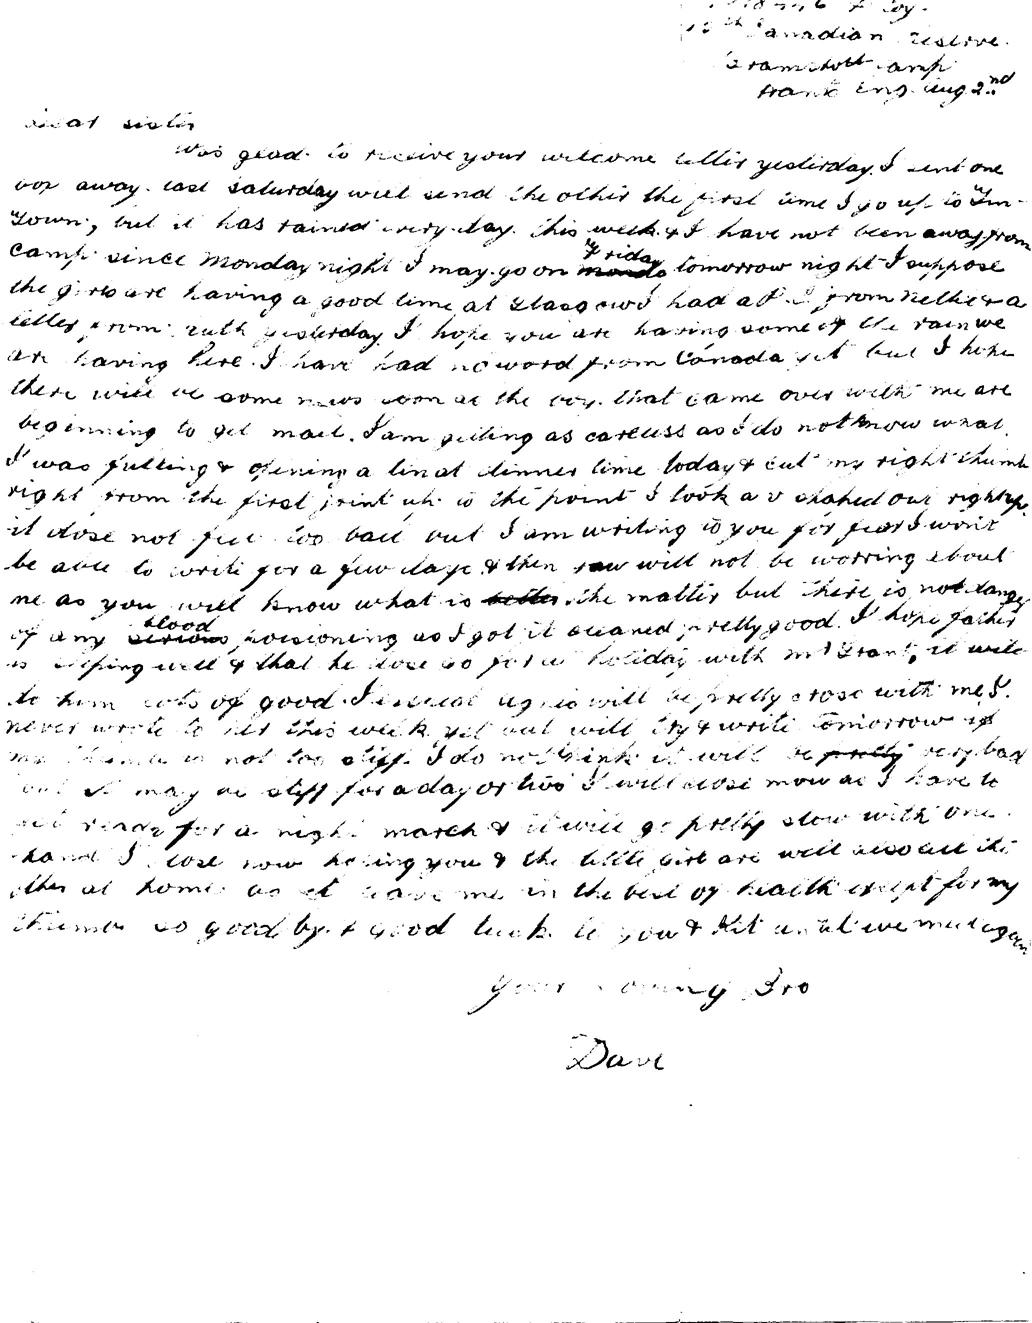 Coy.
Canadian reserve
Bramshott camp
Hants Eng. Aug 2nd
Dear sister
Was glad to recive your welcome letter yesterday. I sent one
box away last saturday will send the other the first time I go up to
Town, but it has rained every day this week & I have not been away from
Camp since Monday night I may go on Friday tomorrow night I suppose
the girls are having a good time at Glasgow I had a from Nellie & a
letter from ruth yesterday I hope you are having some of the rain we
are having here. I have had no word from Canada yet but I hope
there will be some news soon as the boys that came over with me are
beginning to get mail. I am getting as careless as I do not know what.
I was putting & opening a tin at dinner time today & cut my right thumb
right from the first joint up to the point I took a v shaped out right
it dose not feel too bad but I am writing to you for fear I wont
be able to write for a few days & then will not be worring about
me as you will know what is the matter but there is not danger
of any blood poisioning as I got it cleaned pretty good. I hope father
is keeping well & that he dose go for a holiday with Mr Grant, it will
do him lots of good I will be pretty crose with me I
never wrote to her this week yet but will try & write tomorrow if
my thumb is not too stiff. I do not think it will be pretty very bad
but it may be stiff for a day or two I will close now as I have to
get ready for a night march & it will go pretty slow with one
hand I close now hoping you & the little girl are well also all the
others at home as it leave me in the best of health except for my
thumb so good by & good luck to you & Kit until we meet again
Your loving Bro
Dave